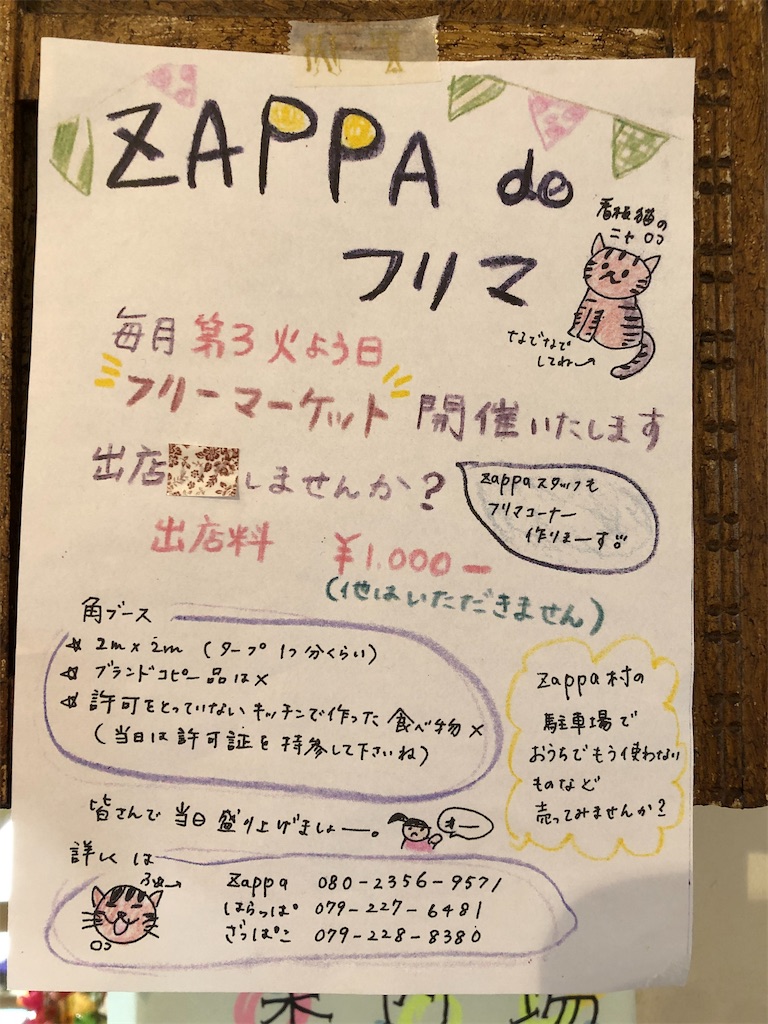 ZAPPA de
フリマ
看板猫の
ニャロコ
なでなで
してね
毎月 第3 火よう日
フリーマーケット 開催いたします
出店 しませんか?
zappaスタッフも
フリマコーナー
作りまーす。
出店料 ¥1.000-
(他はいただきません)
角ブース
☆ 2m×2m (タープ1つ分くらい)
☆ ブランドコピー品は×
☆ 許可をとっていないキッチンで作った食べ物×
(当日は許可証を持参して下さいね)
zappa村の
駐車場で
おうちでもう使わない
ものなど
売ってみませんか?
皆さんで当日盛り上げましょー。
オー
詳しくは
ロコ
zappa 080-2356-9571
はらっぱ 079-227-6481
ざっぱこ 079-228-8380